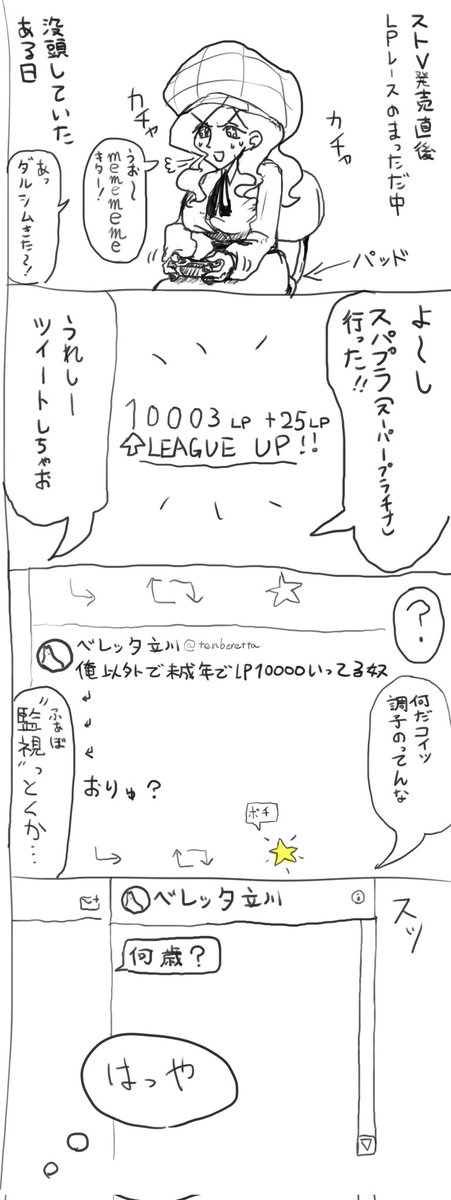 ストⅤ発売直後
LPレースのまっただ中
カチャ
カチャ
パッド
没頭していた
ある日
うお〜
memememe
きたー!
あっ
ダルシムきた〜!
よ〜し
スパプラ(スーパープラチナ)
行った!!
10003 LP +25LP
⇧LEAGUE UP!!
うれしー
ツイートしちゃお
?
ベレッタ立川 @tenberetta
俺以外で未成年でLP10000いってる奴
↲
↲
↲
↲
おりゅ?
何だコイツ
調子のってんな
ふぁぼ
"監視"っとくか…
ポチ
スッ
ベレッタ立川
何歳?
はっや